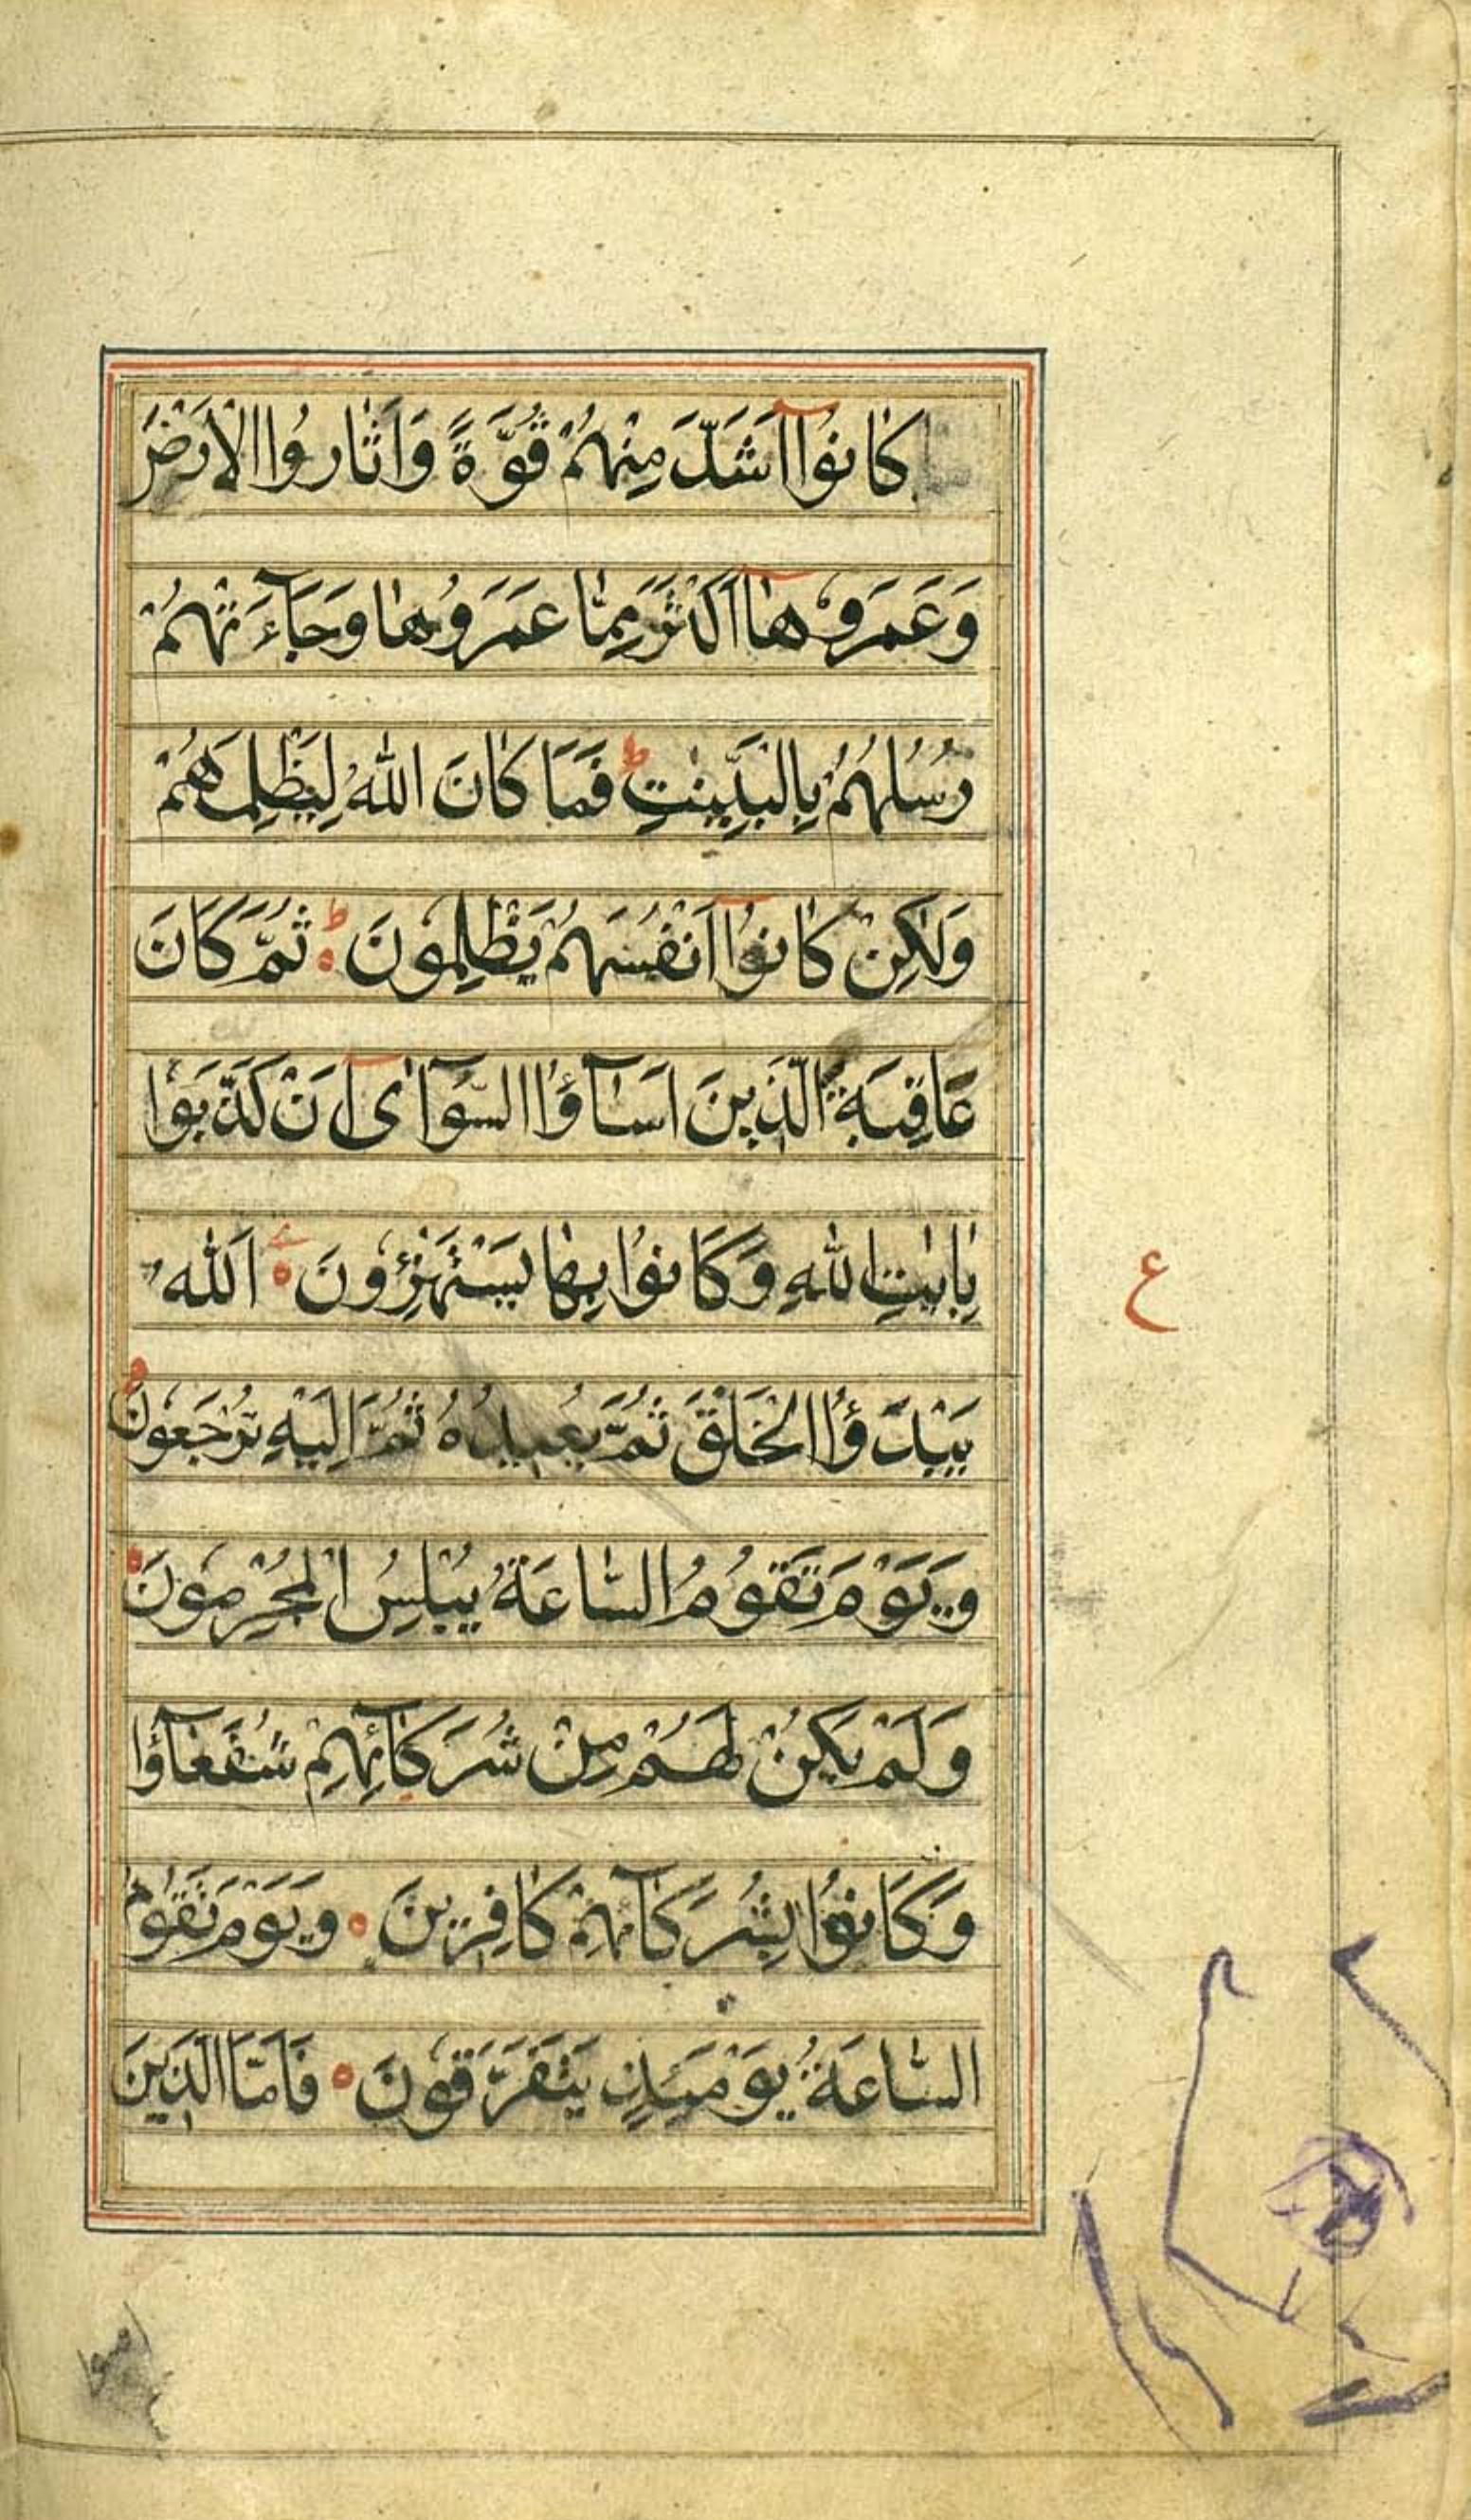 كَانُوٓا اَشَدَّ مِنْهُمْ قُوَّةً وَاَثَارُوا الْاَرْضَ
وَعَمَرُوْهَآ اَكْثَرَ مِمَّا عَمَرُوْهَا وَجَآءَتْهُمْ
رُسُلُهُمْ بِالْبَيِّنٰتِ ط فَمَا كَانَ اللّٰهُ لِيَظْلِمَهُمْ
وَلٰكِنْ كَانُوٓا اَنْفُسَهُمْ يَظْلِمُوْنَ ط ثُمَّ كَانَ
عَاقِبَةَ الَّذِيْنَ اَسَآؤُا السُّوْآٰى اَنْ كَذَّبُوْا
بِاٰيٰتِ اللّٰهِ وَكَانُوْا بِهَا يَسْتَهْزِؤُوْنَ اَللّٰهُ
يَبْدَؤُا الْخَلْقَ ثُمَّ يُعِيْدُهُ ثُمَّ اِلَيْهِ تُرْجَعُوْنَ
وَيَوْمَ تَقُوْمُ السَّاعَةُ يُبْلِسُ الْمُجْرِمُوْنَ
وَلَمْ يَكُنْ لَهُمْ مِنْ شُرَكَآئِهِمْ شُفَعَآؤُا
وَكَانُوْا بِشُرَكَآئِهِمْ كَافِرِيْنَ وَيَوْمَ تَقُوْمُ
السَّاعَةُ يَوْمَئِذٍ يَتَفَرَّقُوْنَ فَاَمَّا الَّذِيْنَ
ع